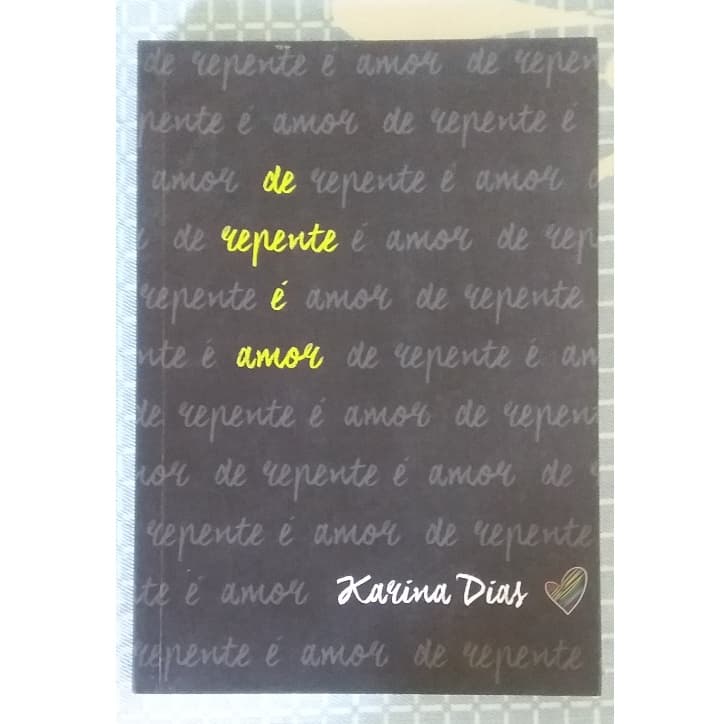 de repente é amor de repen
pente é amor de repente é
amor de repente é amor
de repente é amor de rep
repente é amor de repente
nte é amor de repente é am
de repente é amor de repen
mor de repente é amor de
repente é amor de repente
te é amor Karina Dias
repente é amor de repente